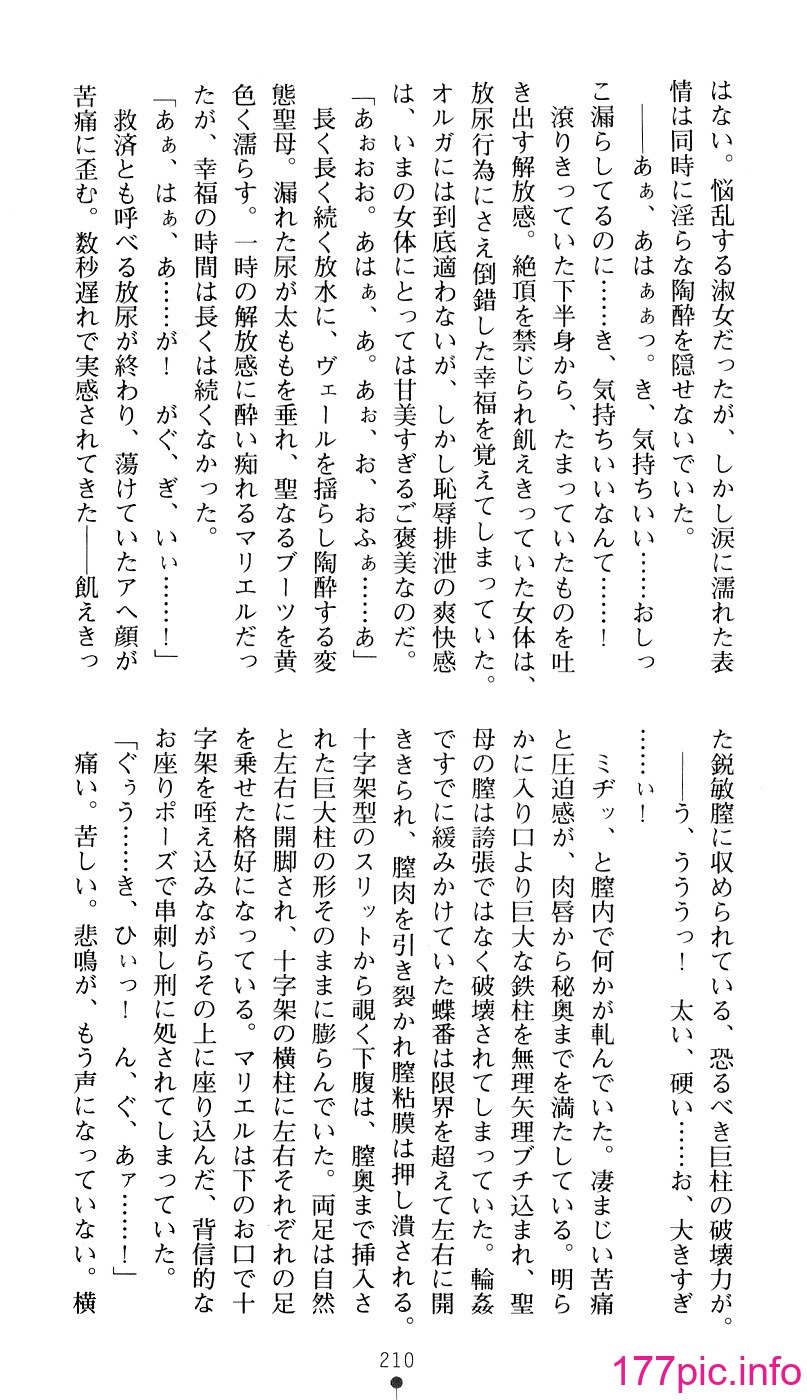 はない。悩乱する淑女だったが、しかし涙に濡れた表
情は同時に淫らな陶酔を隠せないでいた。
――あぁ、あはぁぁっ。き、気持ちいい……おしっ
こ漏らしてるのに……き、気持ちいいなんて……！
滾りきっていた下半身から、たまっていたものを吐
き出す解放感。絶頂を禁じられ飢えきっていた女体は、
放尿行為にさえ倒錯した幸福を覚えてしまっていた。
オルガには到底適わないが、しかし恥辱排泄の爽快感
は、いまの女体にとっては甘美すぎるご褒美なのだ。
「あぉおお。あはぁ、あ。あぉ、お、おふぁ……あ」
長く長く続く放水に、ヴェールを揺らし陶酔する変
態聖母。漏れた尿が太ももを垂れ、聖なるブーツを黄
色く濡らす。一時の解放感に酔い痴れるマリエルだっ
たが、幸福の時間は長くは続くなかった。
「あぁ、はぁ、あ……が！　がぐ、ぎ、いぃ……！」
救済とも呼べる放尿が終わり、蕩けていたアヘ顔が
苦痛に歪む。数秒遅れで実感されてきた――飢えきっ
た鋭敏膣に収められている、恐るべき巨柱の破壊力が。
――う、うううっ！　太い、硬い……お、大きすぎ
……ぃ！
ミヂッ、と膣内で何かが軋んでいた。凄まじい苦痛
と圧迫感が、肉唇から秘奥までを満たしている。明ら
かに入り口より巨大な鉄柱を無理矢理ブチ込まれ、聖
母の膣は誇張ではなく破壊されてしまっていた。輪姦
ですでに緩みかけていた蝶番は限界を超えて左右に開
ききられ、膣肉を引き裂かれ膣粘膜は押し潰される。
十字架型のスリットから覗く下腹は、膣奥まで挿入さ
れた巨大柱の形そのままに膨らんでいた。両足は自然
と左右に開脚され、十字架の横柱に左右それぞれの足
を乗せた格好になっている。マリエルは下のお口で十
字架を咥え込みながらその上に座り込んだ、背信的な
お座りポーズで串刺し刑に処されてしまっていた。
「ぐぅう……き、ひぃっ！　ん、ぐ、あァ……！」
痛い。苦しい。悲鳴が、もう声になっていない。横
210
177pic.info